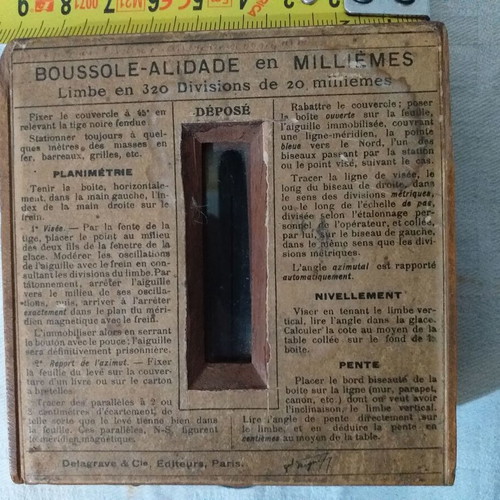 BOUSSOLE-ALIDADE en MILLIÈMES
Limbe en 320 Divisions de 20 millièmes
DÉPOSÉ
Fixer le couvercle à 45° en
relevant la tige noire fendue
Stationner toujours à quel-
ques mètres des masses en
fer, barreaux, grilles, etc.
PLANIMÉTRIE
Tenir la boîte, horizontale-
ment, dans la main gauche, l'in-
dex de la main droite sur le
frein.
1° Visée. — Par la fente de la
tige, placer le point au milieu
des deux fils de la fenêtre de la
glace. Modérer les oscillations
de l'aiguille avec le frein en con-
sultant les divisions du limbe. Par
tâtonnement, arrêter l'aiguille
vers le milieu de ses oscilla-
tions, puis, arriver à l'arrêter
exactement dans le plan du méri-
dien magnétique avec le frein.
L'immobiliser alors en serrant
le bouton avec le pouce; l'aiguille
sera définitivement prisonnière.
2° Report de l'azimut. — Fixer
la feuille du levé sur la couver-
ture d'un livre ou sur le carton
à bretelles.
Tracer des parallèles à 2 ou
3 centimètres d'écartement, de
telle sorte que le levé tienne bien dans
la feuille. Ces parallèles, N-S, figurent
le méridien magnétique.
Rabattre le couvercle; poser
la boîte ouverte sur la feuille,
l'aiguille immobilisée, couvrant
une ligne-méridien, la pointe
bleue vers le Nord, l'un des
biseaux passant par la station
ou le point visé, suivant le cas.
Tracer la ligne de visée, le
long du biseau de droite, dans
le sens des divisions métriques,
ou, le long de l'échelle de pas,
divisée selon l'étalonnage per-
sonnel de l'opérateur, et collée,
par lui, sur le biseau de gauche,
dans le même sens que les divi-
sions métriques.
L'angle azimutal est rapporté
automatiquement.
NIVELLEMENT
Viser en tenant le limbe ver-
tical, lire l'angle dans la glace.
Calculer la cote au moyen de la
table collée sur le fond de la
boîte.
PENTE
Placer le bord biseauté de la
boîte sur la ligne (mur, parapet,
canon, etc.) dont on veut avoir
l'inclinaison, le limbe vertical.
Lire l'angle de pente directement sur
le limbe, et en déduire la pente en
centièmes au moyen de la table.
Delagrave & Cie, Editeurs, Paris.